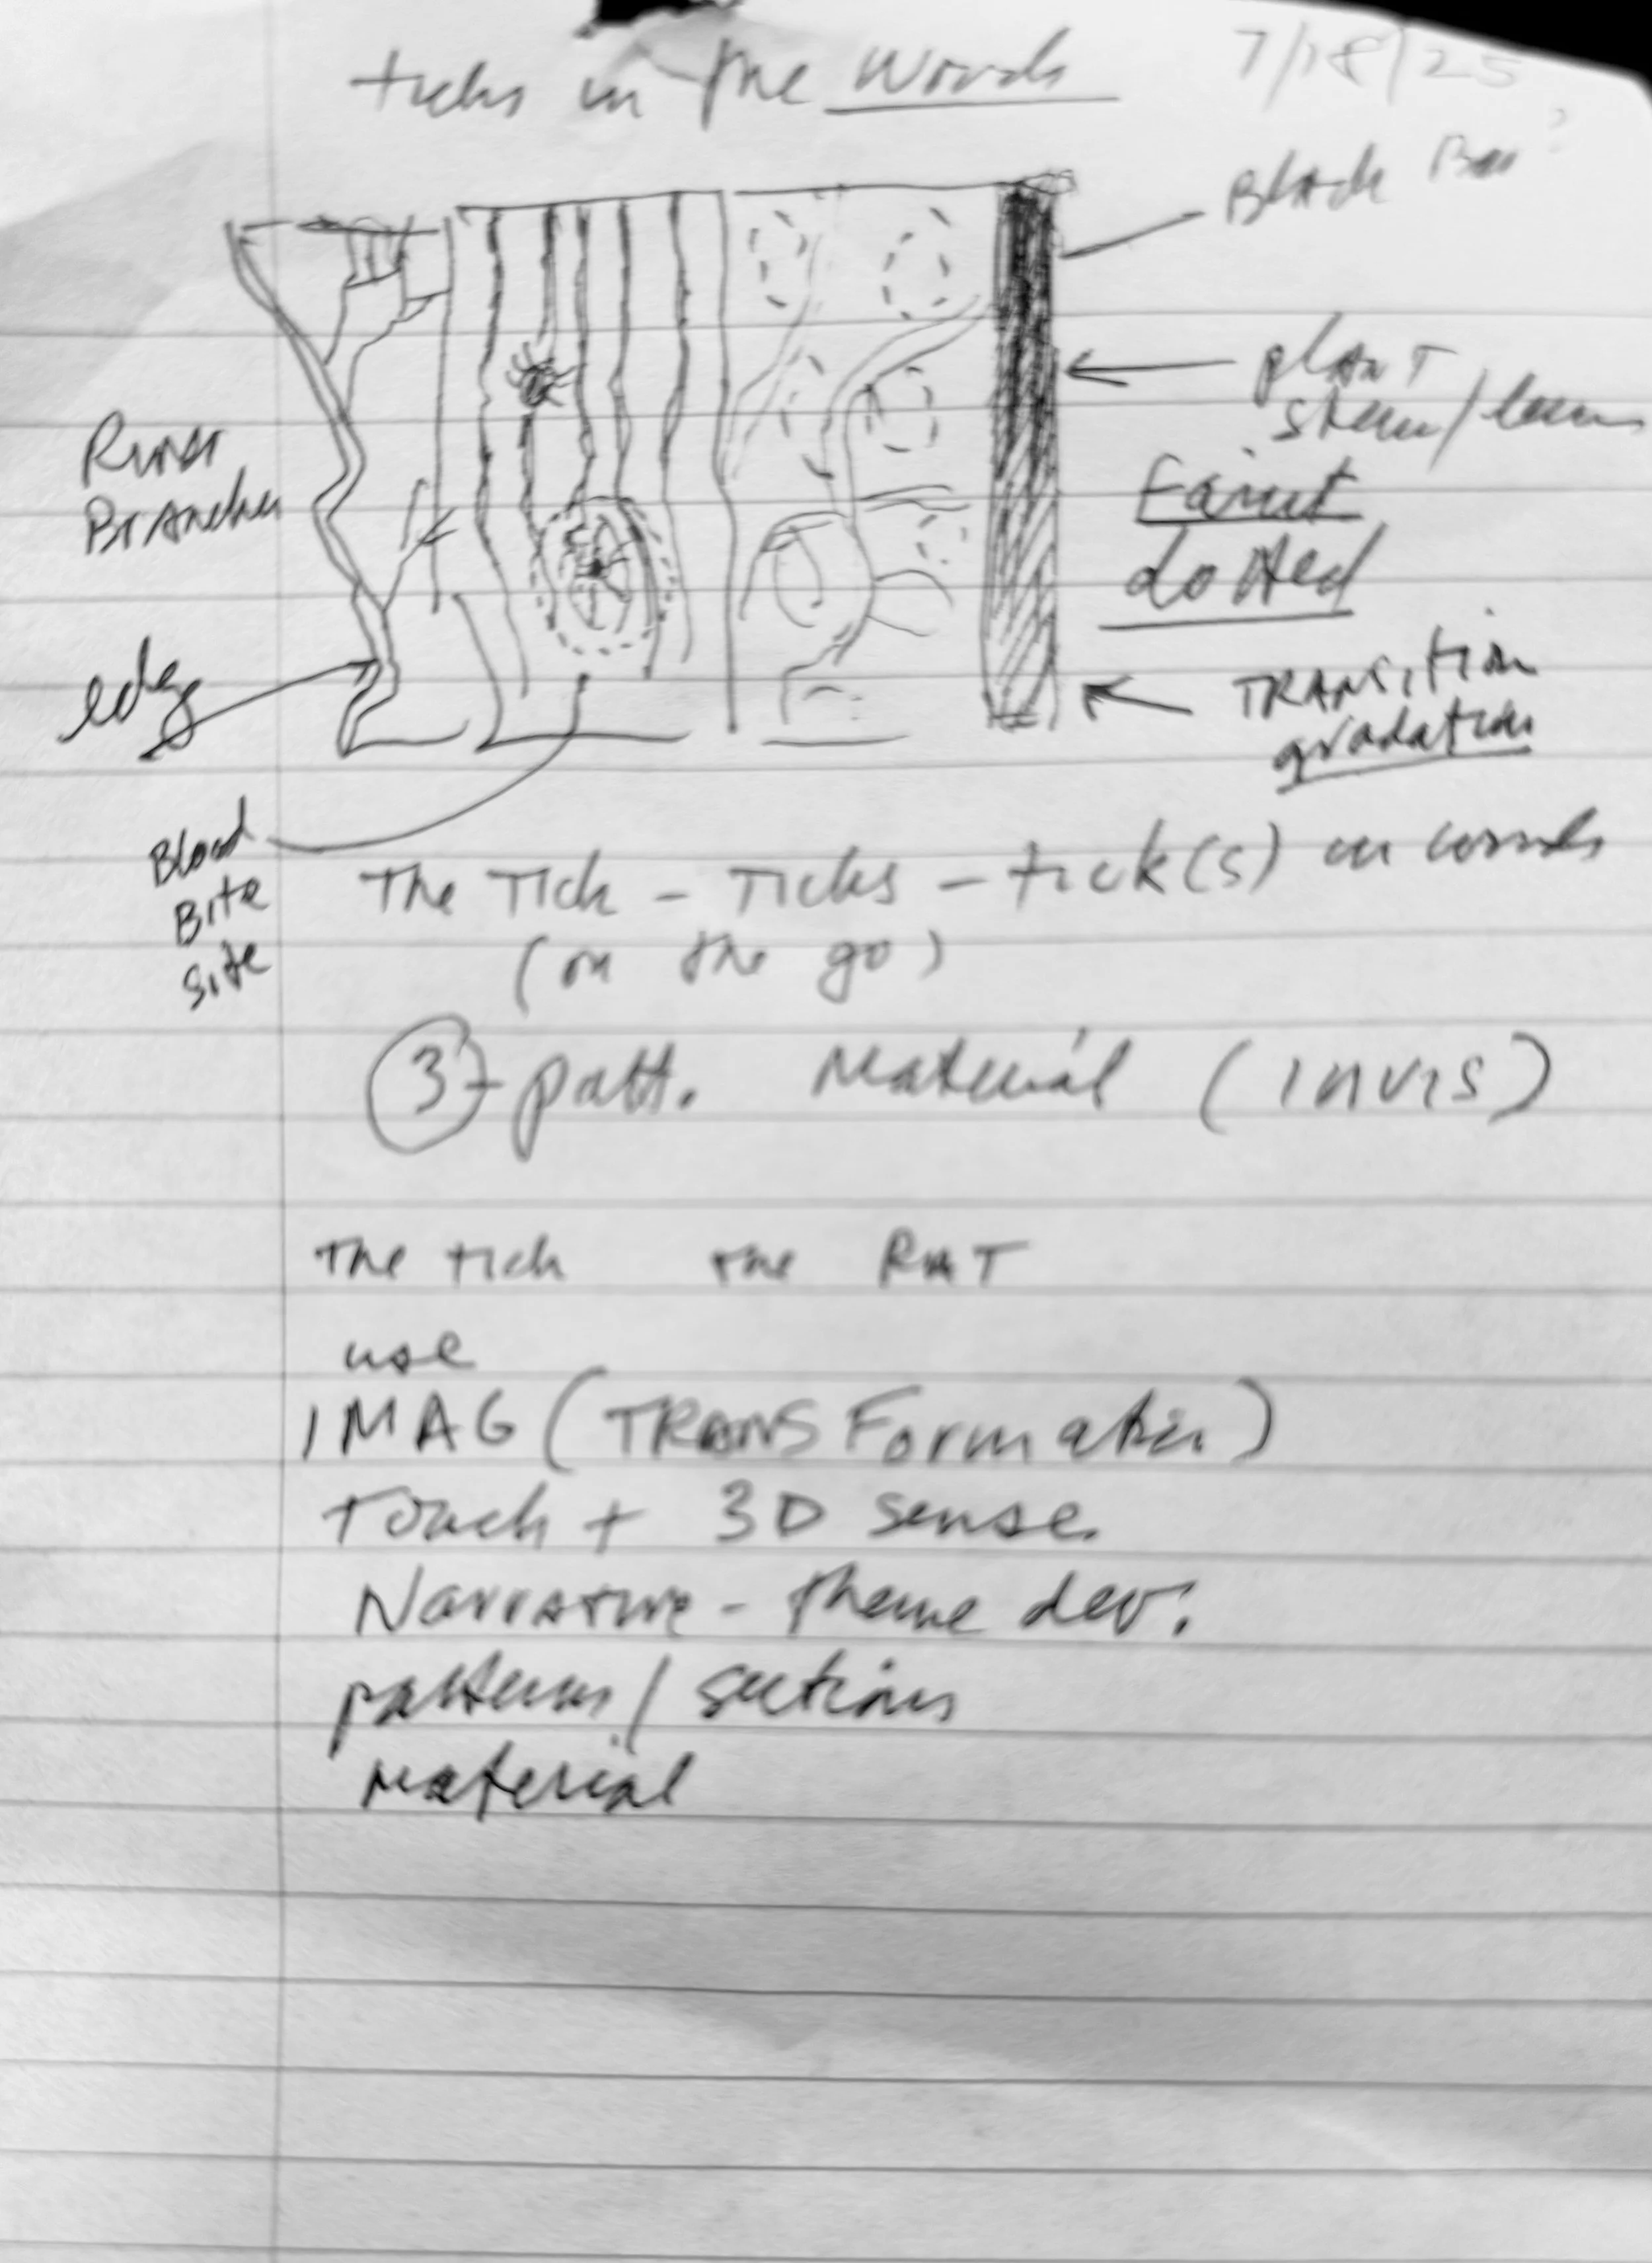 ticks in the Woods
7/18/25
Black Bar
River
Branches
plant
stem/
Faint
dotted
edge
TRANSition
gradation
Blood
Bite
site
The Tick - Ticks - tick(s) in woods
(on the go)
3 - patt. Material (INVIS)
The tick the RAT
use
IMAG (TRANSFormation)
Touch + 3D sense.
Narrative - theme dev.
patterns/sections
material